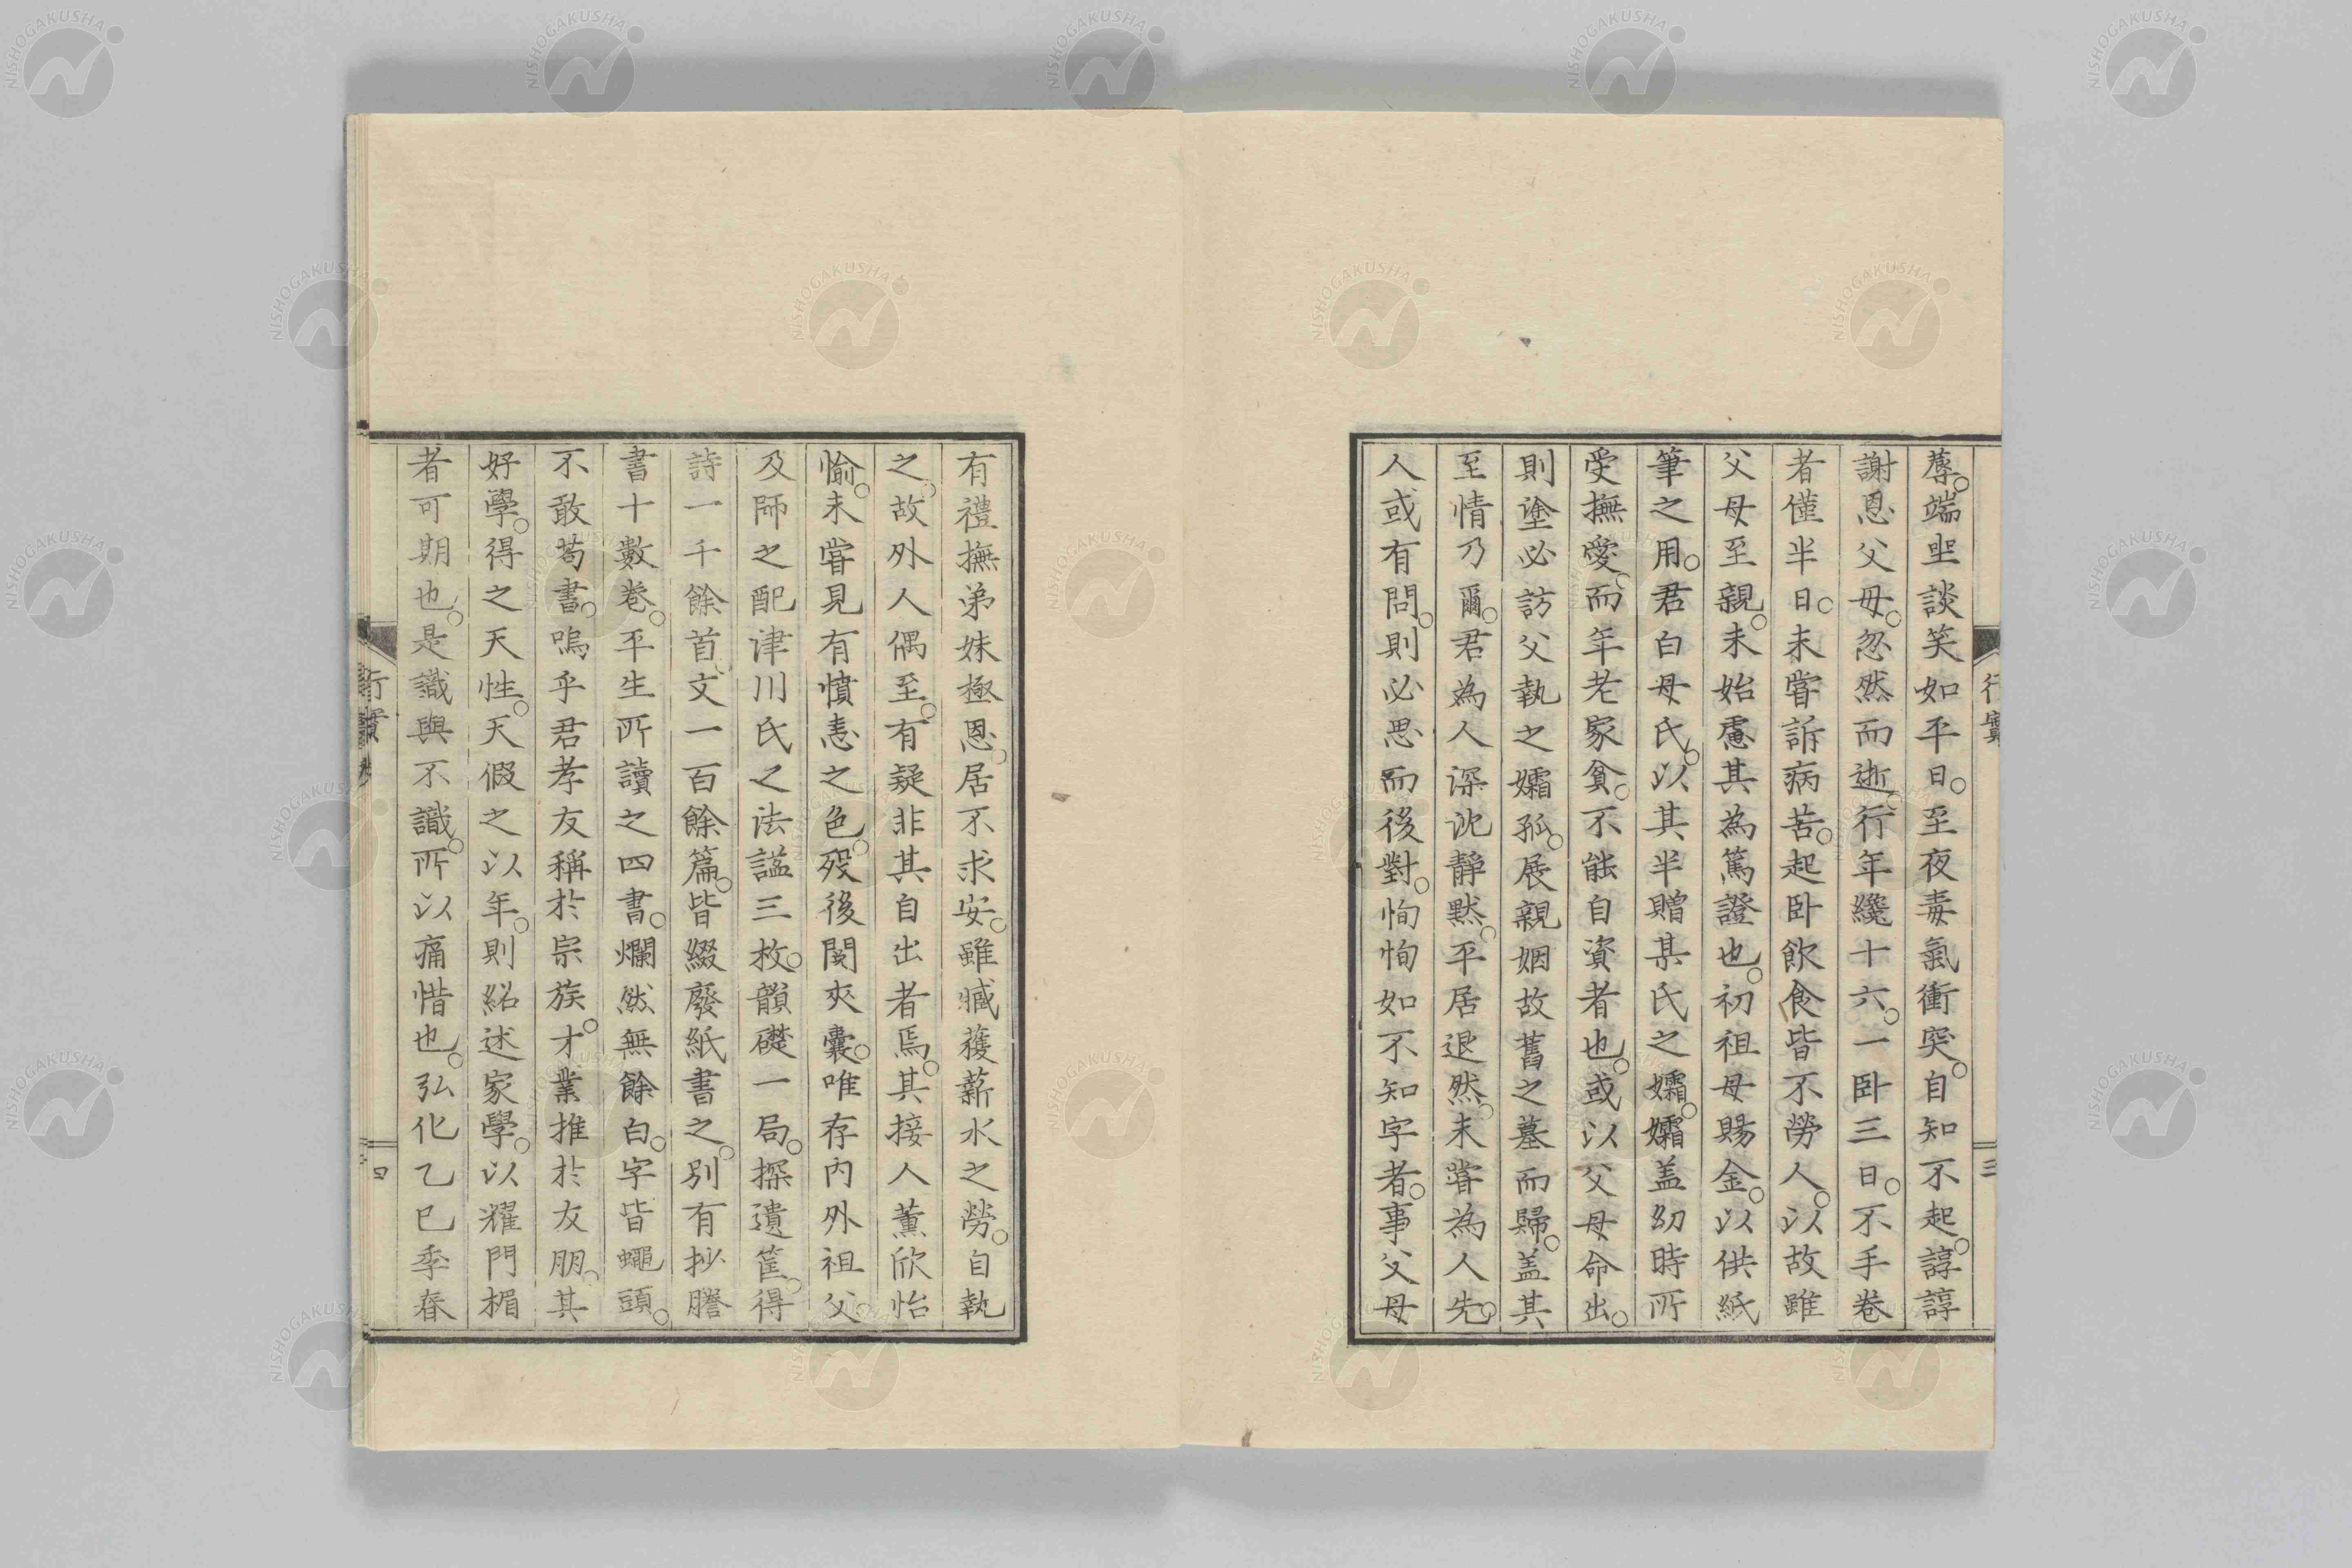 蓐。端坐談笑如平日。至夜毒氣衝突。自知不起。諄諄
謝恩父母。忽然而逝。行年纔十六。一卧三日。不手卷
者僅半日。未甞訴病苦。起卧飲食皆不勞人。以故雖
父母至親。未始慮其為篤證也。初祖母賜金。以供紙
筆之用。君白母氏。以其半贈某氏之孀。孀盖幼時所
受撫愛。而年老家貧。不能自資者也。或以父母命出。
則塗必訪父執之孀孤。展親姻故舊之墓而歸。盖其
至情乃爾。君為人深沈靜默。平居退然。未甞為人先。
人或有問。則必思而後對。恂恂如不知字者。事父母
行實
三
有禮撫弟妹極恩。居不求安。雖臧獲薪水之勞。自執
之。故外人偶至。有疑非其自出者焉。其接人薰欣怡
愉。未甞見有憤恚之色。歿後閱夾囊。唯存內外祖父
及師之配津川氏之法諡三枚。韻礎一局。探遺筐。得
詩一千餘首。文一百餘篇。皆綴廢紙書之。別有抄謄
書十數卷。平生所讀之四書。爛然無餘白。字皆蠅頭。
不敢苟書。嗚乎君孝友稱於宗族。才業推於友朋。其
好學。得之天性。天假之以年。則紹述家學。以耀門楣
者可期也。是識與不識。所以痛惜也。弘化乙巳季春
行實
四
NISHOGAKUSHA